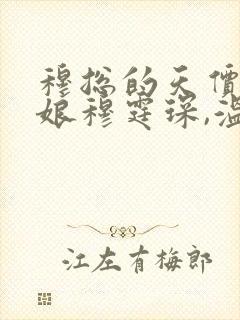 穆总的天价
娘穆霆琛,温
江左有梅郎